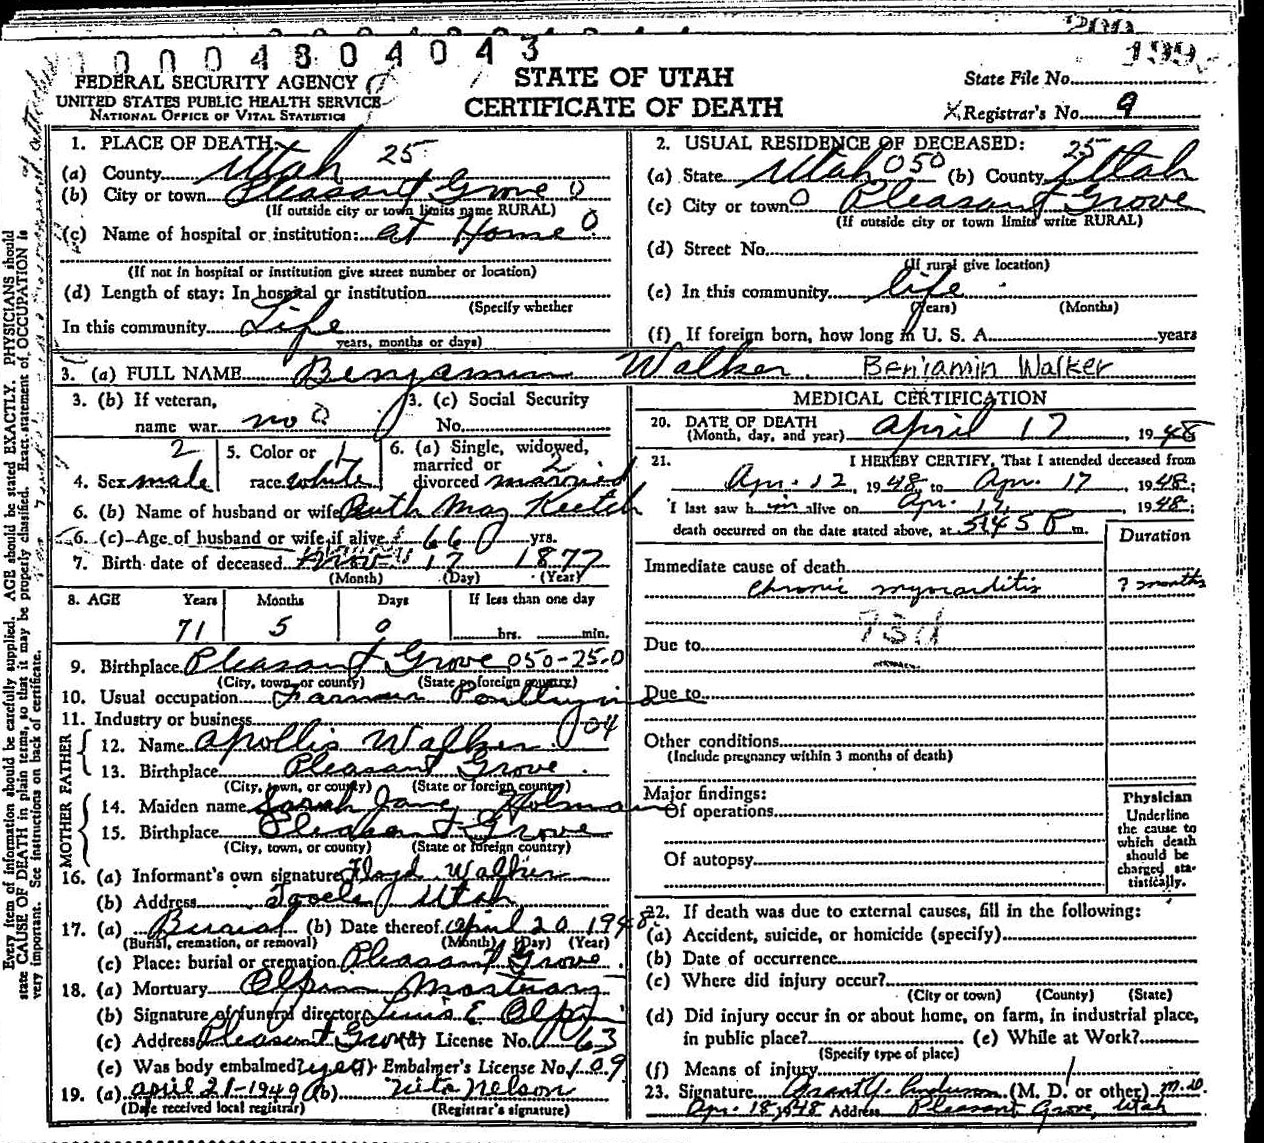 0 0 0 4 8 0 4 0 4 3
FEDERAL SECURITY AGENCY
UNITED STATES PUBLIC HEALTH SERVICE
NATIONAL OFFICE OF VITAL STATISTICS
STATE OF UTAH
CERTIFICATE OF DEATH
State File No.
Registrar's No. 9
1. PLACE OF DEATH:
(a) County Utah 25
(b) City or town Pleasant Grove 0
(If outside city or town limits name RURAL)
(c) Name of hospital or institution: at Home 0
(If not in hospital or institution give street number or location)
(d) Length of stay: In hospital or institution
(Specify whether
In this community Life
years, months or days)
2. USUAL RESIDENCE OF DECEASED:
(a) State Utah 050 (b) County 25 Utah
(c) City or town 0 Pleasant Grove
(If outside city or town limits write RURAL)
(d) Street No.
(If rural give location)
(e) In this community life
(Years) (Months)
(f) If foreign born, how long in U. S. A. years
3. (a) FULL NAME Benjamin Walker Benjamin Walker
3. (b) If veteran,
name war no 0
3. (c) Social Security
No.
2
4. Sex male
5. Color or 1
race white
6. (a) Single, widowed,
married or 2
divorced married
6. (b) Name of husband or wife Ruth May Keetch
6. (c) Age of husband or wife if alive 66 yrs.
7. Birth date of deceased Nov 17 1877
(Month) (Day) (Year)
8. AGE Years Months Days If less than one day
71 5 0 hrs. min.
9. Birthplace Pleasant Grove 050-25-0
(City, town, or county) (State or foreign country)
10. Usual occupation Farmer Poultryman
11. Industry or business 04
FATHER
12. Name Apollis Walker
13. Birthplace Pleasant Grove
(City, town, or county) (State or foreign country)
MOTHER
14. Maiden name Sarah Jane Holman
15. Birthplace Pleasant Grove
(City, town, or county) (State or foreign country)
16. (a) Informant's own signature Floyd Walker
(b) Address Tooele Utah
17. (a) Burial (b) Date thereof April 20 1948
(Burial, cremation, or removal) (Month) (Day) (Year)
(c) Place: burial or cremation Pleasant Grove
18. (a) Mortuary Olpin Mortuary
(b) Signature of funeral director E Olpin
(c) Address Pleasant Grove (d) License No. 63
(e) Was body embalmed? yes Embalmer's License No. 109
19. (a) april 21-1949 (b) Nelson
(Date received local registrar) (Registrar's signature)
MEDICAL CERTIFICATION
20. DATE OF DEATH
(Month, day, and year) April 17, 1948
21. I HEREBY CERTIFY, That I attended deceased from
Apr. 12, 1948 to Apr. 17 1948;
I last saw him alive on Apr. 17, 1948;
death occurred on the date stated above, at 5:45 P m.
Duration
Immediate cause of death
Chronic myocarditis ? months
93d
Due to
Due to
Other conditions
(Include pregnancy within 3 months of death)
Major findings:
Of operations
Of autopsy
Physician
Underline
the cause to
which death
should be
charged sta-
tistically.
22. If death was due to external causes, fill in the following:
(a) Accident, suicide, or homicide (specify)
(b) Date of occurrence
(c) Where did injury occur?
(City or town) (County) (State)
(d) Did injury occur in or about home, on farm, in industrial place,
in public place? (e) While at Work?
(Specify type of place)
(f) Means of injury
23. Signature Grant Y. Anderson (M. D. or other) M.D.
Apr. 18, 1948 Address Pleasant Grove, Utah
Every item of information should be carefully supplied. AGE should be stated EXACTLY. PHYSICIANS should
state CAUSE OF DEATH in plain terms, so that it may be properly classified. Exact statement of OCCUPATION is
very important. See instructions on back of certificate.